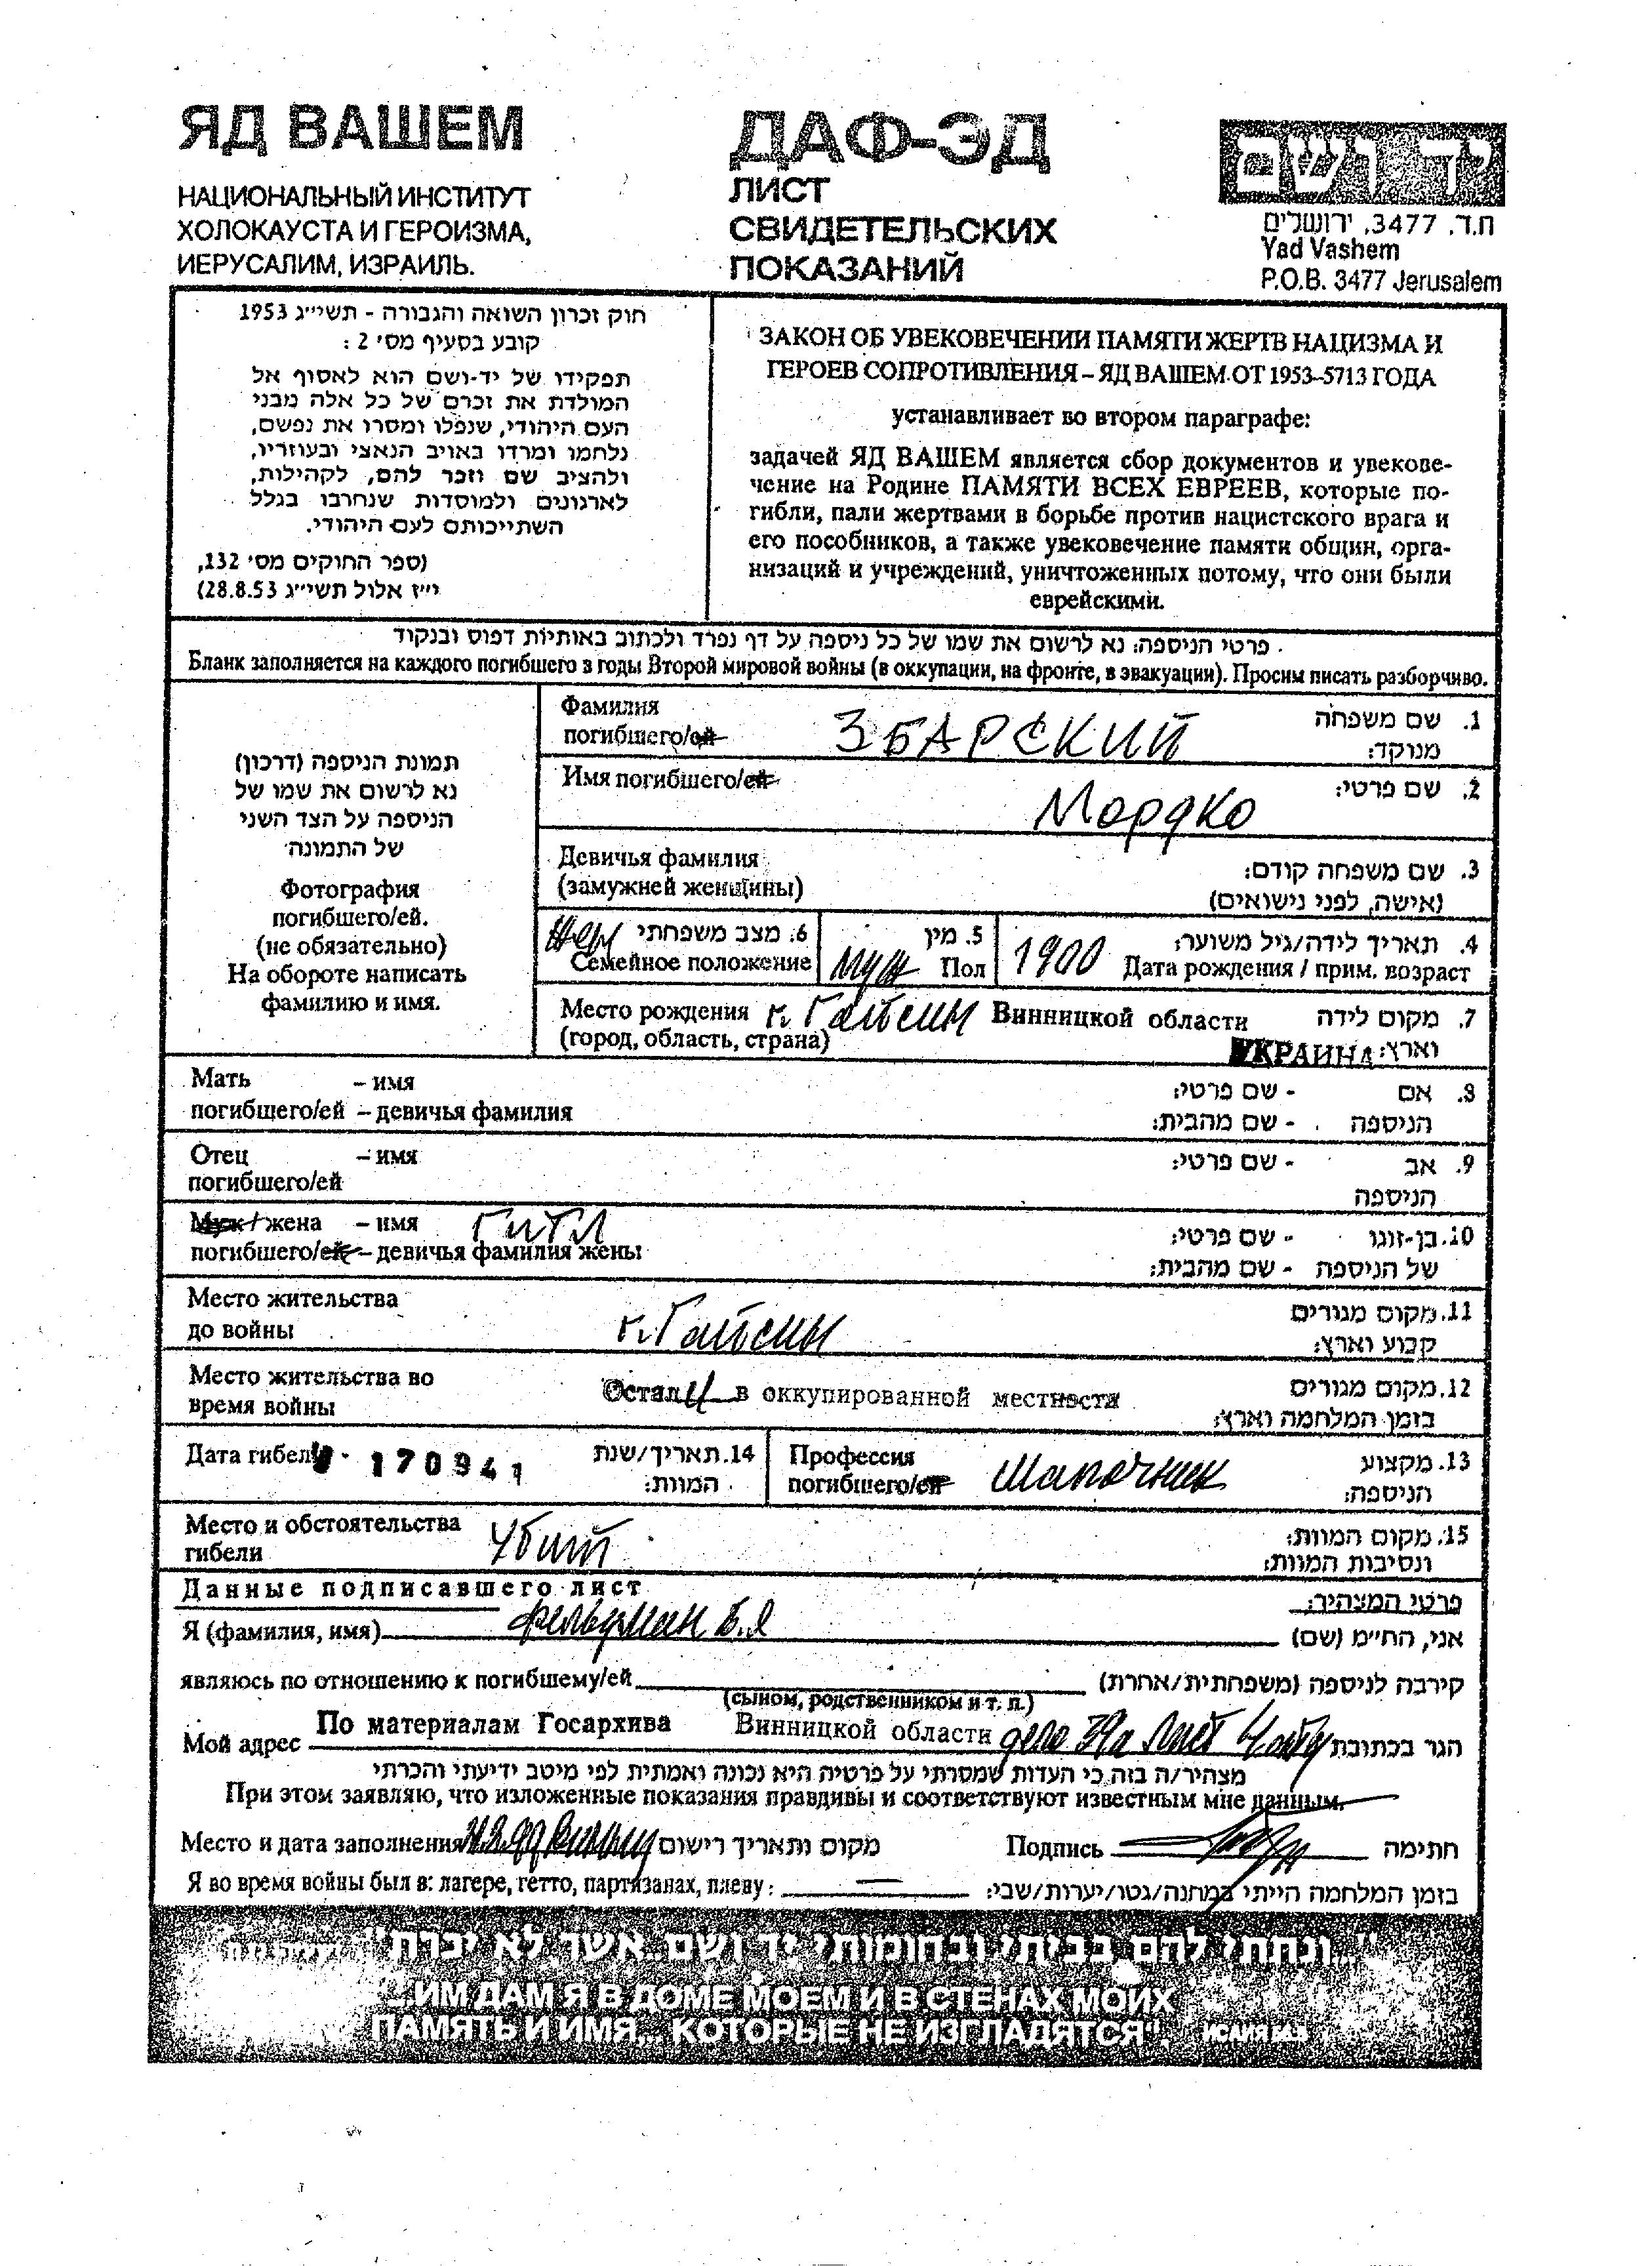 ЯД ВАШЕМ
НАЦИОНАЛЬНЫЙ ИНСТИТУТ
ХОЛОКАУСТА И ГЕРОИЗМА,
ИЕРУСАЛИМ, ИЗРАИЛЬ.
ДАФ-ЭД
ЛИСТ
СВИДЕТЕЛЬСКИХ
ПОКАЗАНИЙ
יד ושם
ת.ד. 3477, ירושלים
Yad Vashem
P.O.B. 3477 Jerusalem
חוק זכרון השואה והגבורה - תשי״ג 1953
קובע בסעיף מס׳ 2 :
תפקידו של יד-ושם הוא לאסוף אל
המולדת את זכרם של כל אלה מבני
העם היהודי, שנפלו ומסרו את נפשם,
נלחמו ומרדו באויב הנאצי ובעוזריו,
ולהציב שם וזכר להם, לקהילות,
לארגונים ולמוסדות שנחרבו בגלל
השתייכותם לעם היהודי.
(ספר החוקים מס׳ 132,
י״ז אלול תשי״ג 28.8.53)
ЗАКОН ОБ УВЕКОВЕЧЕНИИ ПАМЯТИ ЖЕРТВ НАЦИЗМА И
ГЕРОЕВ СОПРОТИВЛЕНИЯ – ЯД ВАШЕМ ОТ 1953–5713 ГОДА
устанавливает во втором параграфе:
задачей ЯД ВАШЕМ является сбор документов и увекове-
чение на Родине ПАМЯТИ ВСЕХ ЕВРЕЕВ, которые по-
гибли, пали жертвами в борьбе против нацистского врага и
его пособников, а также увековечение памяти общин, орга-
низаций и учреждений, уничтоженных потому, что они были
еврейскими.
פרטי הניספה: נא לרשום את שמו של כל ניספה על דף נפרד ולכתוב באותיות דפוס ובנקוד
Бланк заполняется на каждого погибшего в годы Второй мировой войны (в оккупации, на фронте, в эвакуации). Просим писать разборчиво.
תמונת הניספה (דרכון)
נא לרשום את שמו של
הניספה על הצד השני
של התמונה
Фотография
погибшего/ей.
(не обязательно)
На обороте написать
фамилию и имя.
Фамилия
погибшего/ей ЗБАРСКИЙ
1. שם משפחה
מנוקד:
Имя погибшего/ей Мордко
2. שם פרטי:
Девичья фамилия
(замужней женщины)
3. שם משפחה קודם:
(אישה, לפני נישואים)
6. מצב משפחתי
Семейное положение
5. מין
муж Пол
4. תאריך לידה/גיל משוער:
1900 Дата рождения / прим. возраст
Место рождения г. Гайсин Винницкой области
(город, область, страна)
УКРАИНА
7. מקום לידה
וארץ:
Мать – имя
погибшего/ей – девичья фамилия
8. אם - שם פרטי:
הניספה - שם מהבית:
Отец – имя
погибшего/ей
9. אב - שם פרטי:
הניספה
Муж / жена – имя Гитл
погибшего/ей – девичья фамилия жены
10. בן-זוגו - שם פרטי:
של הניספה - שם מהבית:
Место жительства
до войны г. Гайсин
11. מקום מגורים
קבוע וארץ:
Место жительства во
время войны
в оккупированной местности
12. מקום מגורים
בזמן המלחמה וארץ:
Дата гибели 170941
14. תאריך/שנת
המוות:
Профессия
погибшего/ей шапочник
13. מקצוע
הניספה:
Место и обстоятельства
гибели Убит
15. מקום המוות:
ונסיבות המוות:
Данные подписавшего лист
פרטי המצהיר:
Я (фамилия, имя) Фельдман Б.Я
אני, החי״מ (שם)
являюсь по отношению к погибшему/ей
(сыном, родственником и т. п.)
קירבה לניספה (משפחתית/אחרת)
Мой адрес По материалам Госархива Винницкой области дело 39а Лист
הגר בכתובת
מצהיר/ה בזה כי העדות שמסרתי על פרטיה היא נכונה ואמתית לפי מיטב ידיעתי והכרתי
При этом заявляю, что изложенные показания правдивы и соответствуют известным мне данным.
Место и дата заполнения
מקום ותאריך רישום
Подпись
חתימה
Я во время войны был в: лагере, гетто, партизанах, плену:
בזמן המלחמה הייתי במחנה/גטו/יערות/שבי:
"...ונתתי להם בביתי ובחומותי יד ושם...אשר לא יכרת"
"...ИМ ДАМ Я В ДОМЕ МОЕМ И В СТЕНАХ МОИХ
ПАМЯТЬ И ИМЯ... КОТОРЫЕ НЕ ИЗГЛАДЯТСЯ".